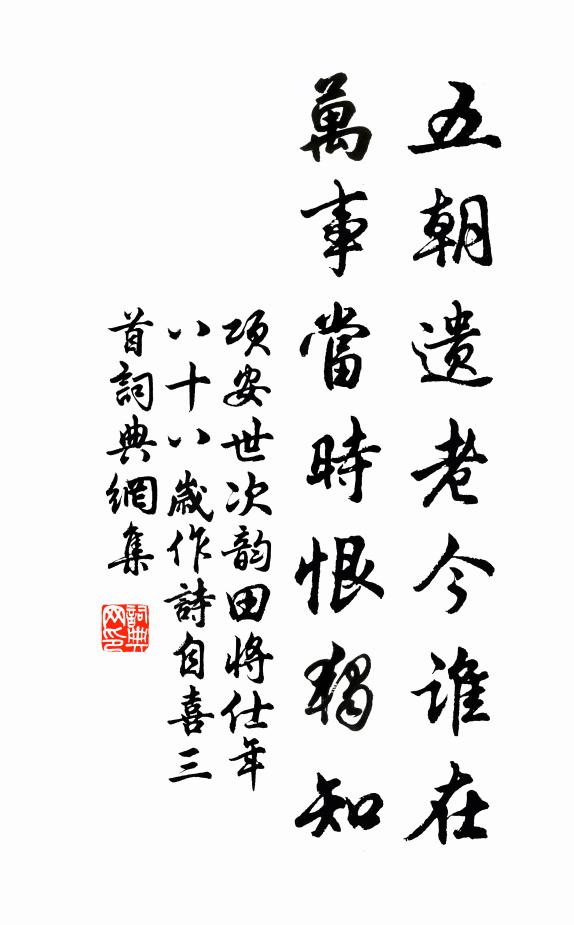 五朝遺老今誰在
萬事當時恨獨知
項安世次韵田將仕年
八十八歲作詩自喜三
首詞典網集
詞典網印